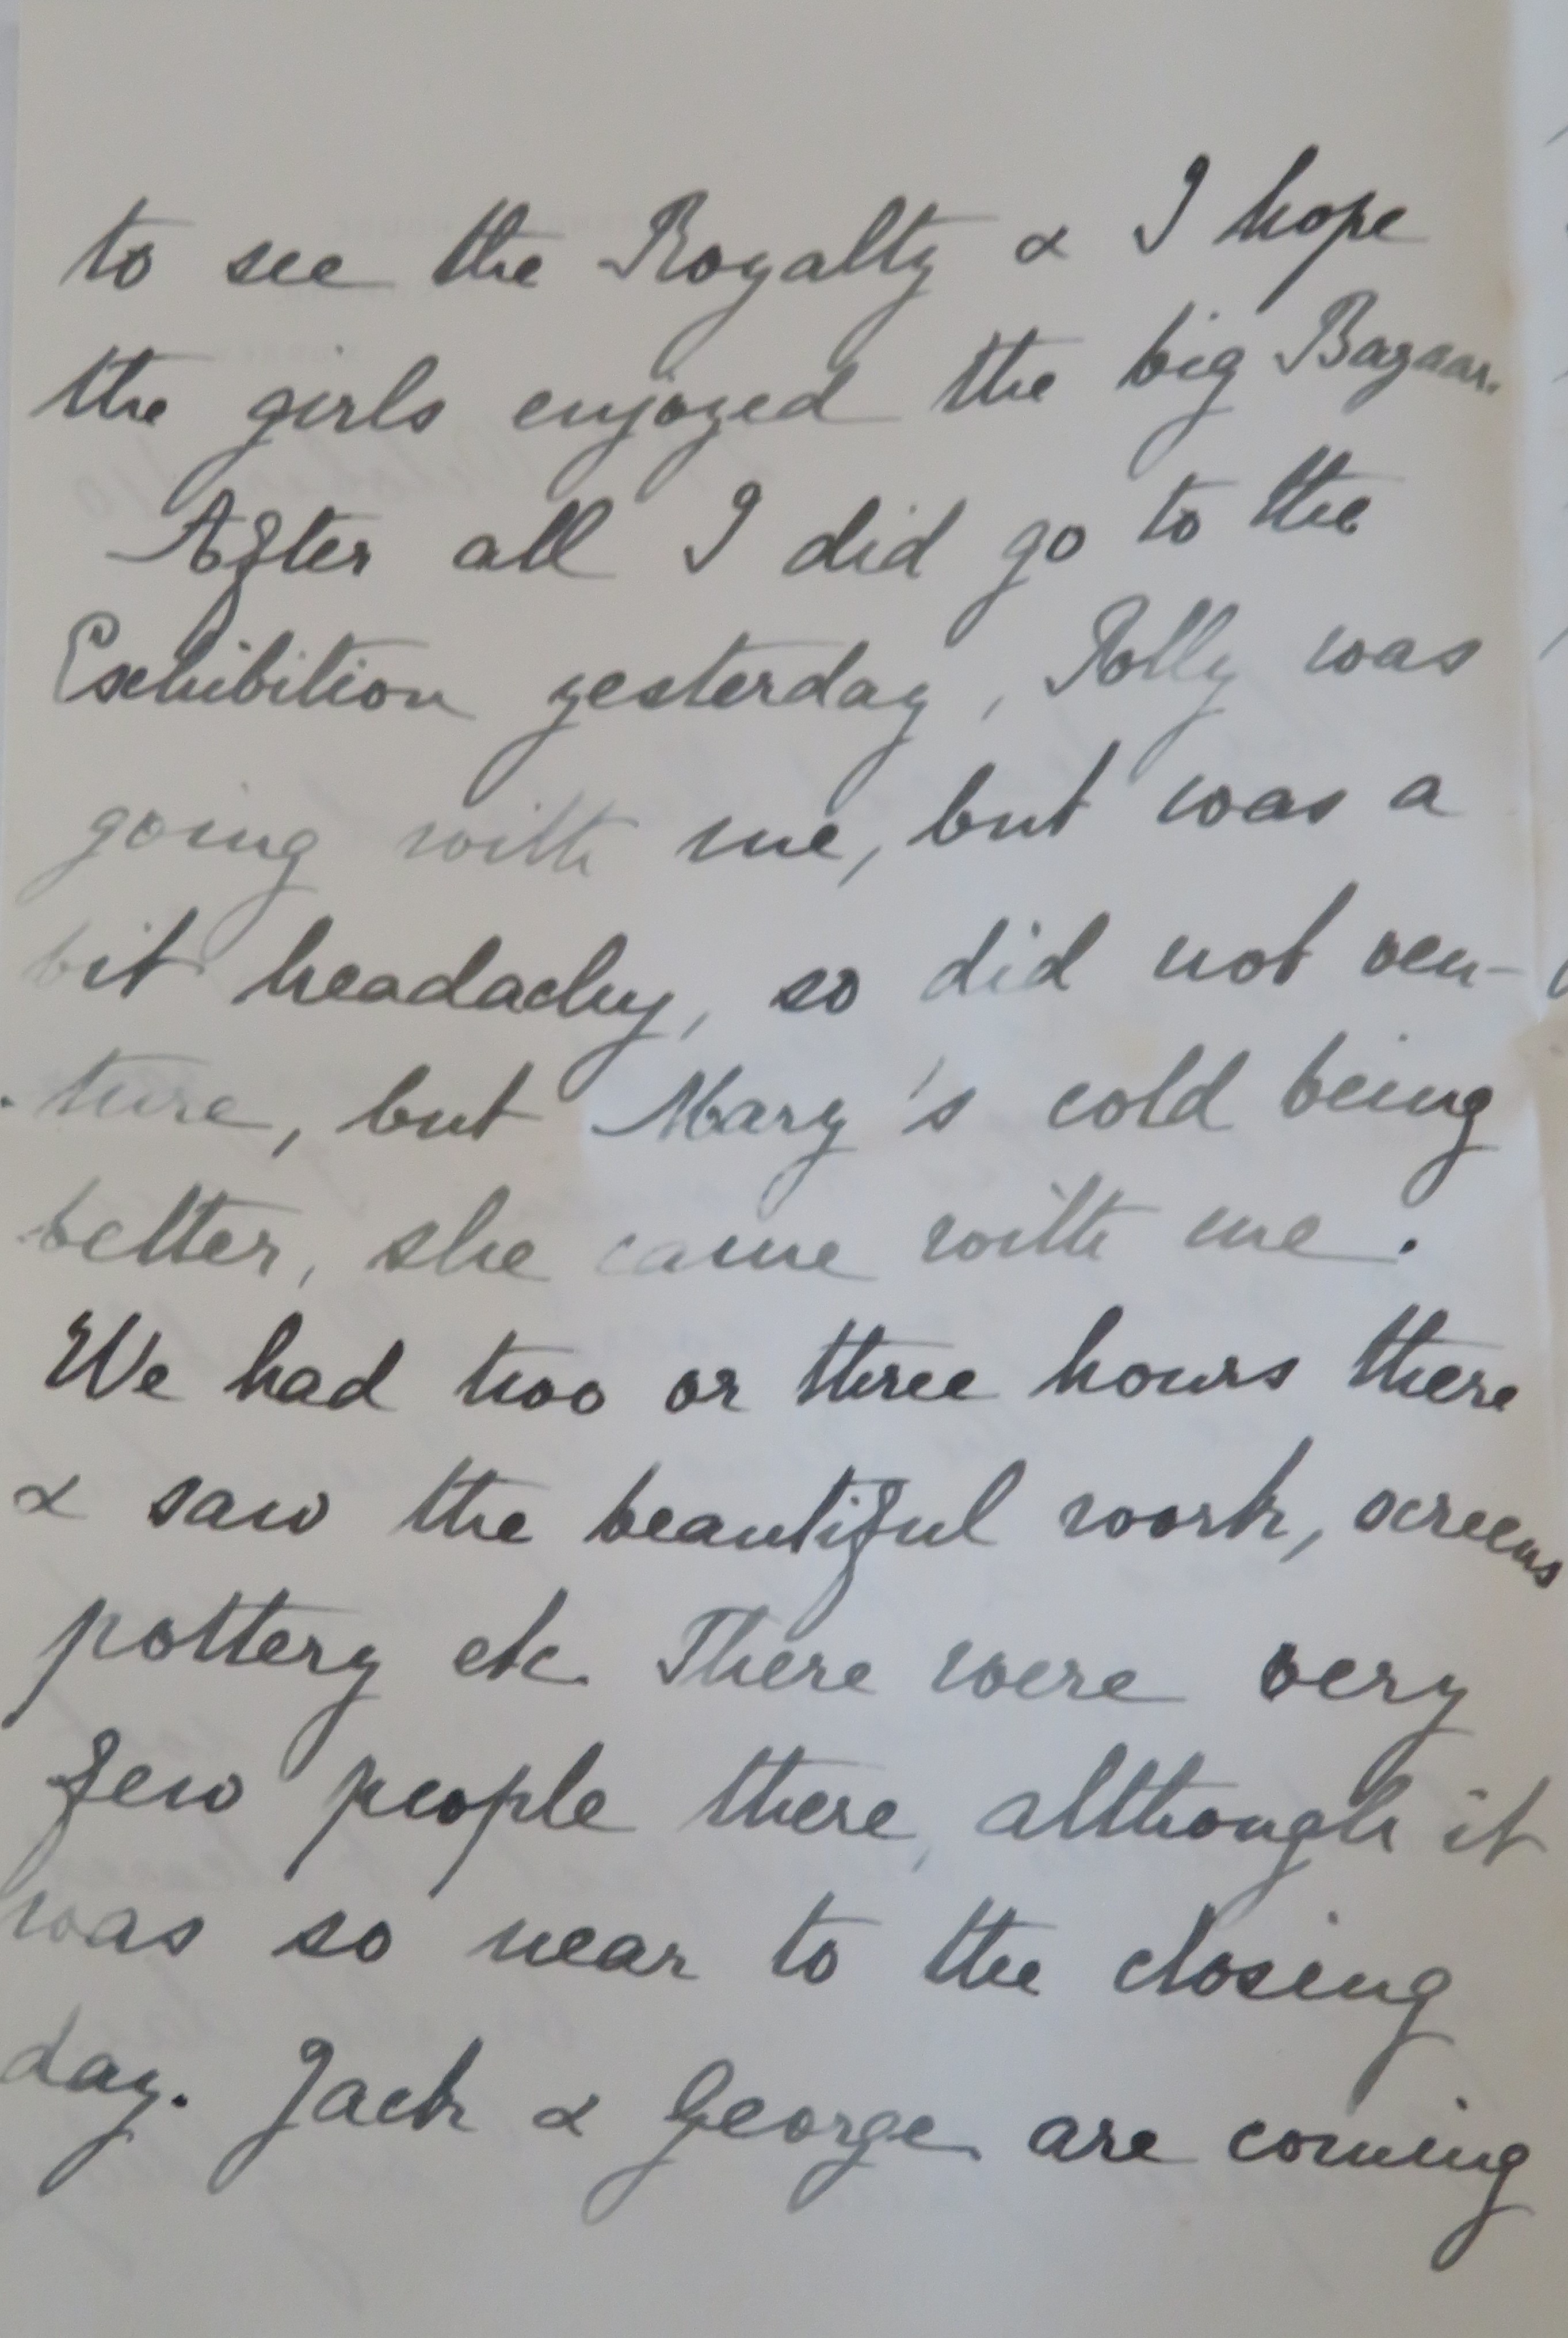 to see the Royalty & I hope
the girls enjoyed the big Bazaar.
After all I did go to the
Exhibition yesterday, Polly was
going with me, but was a
bit headachy, so did not ven-
-ture, but Mary's cold being
better, she came with me.
We had two or three hours there
& saw the beautiful work, screens
pottery etc. There were very
few people there, although it
was so near to the closing
day. Jack & George are coming